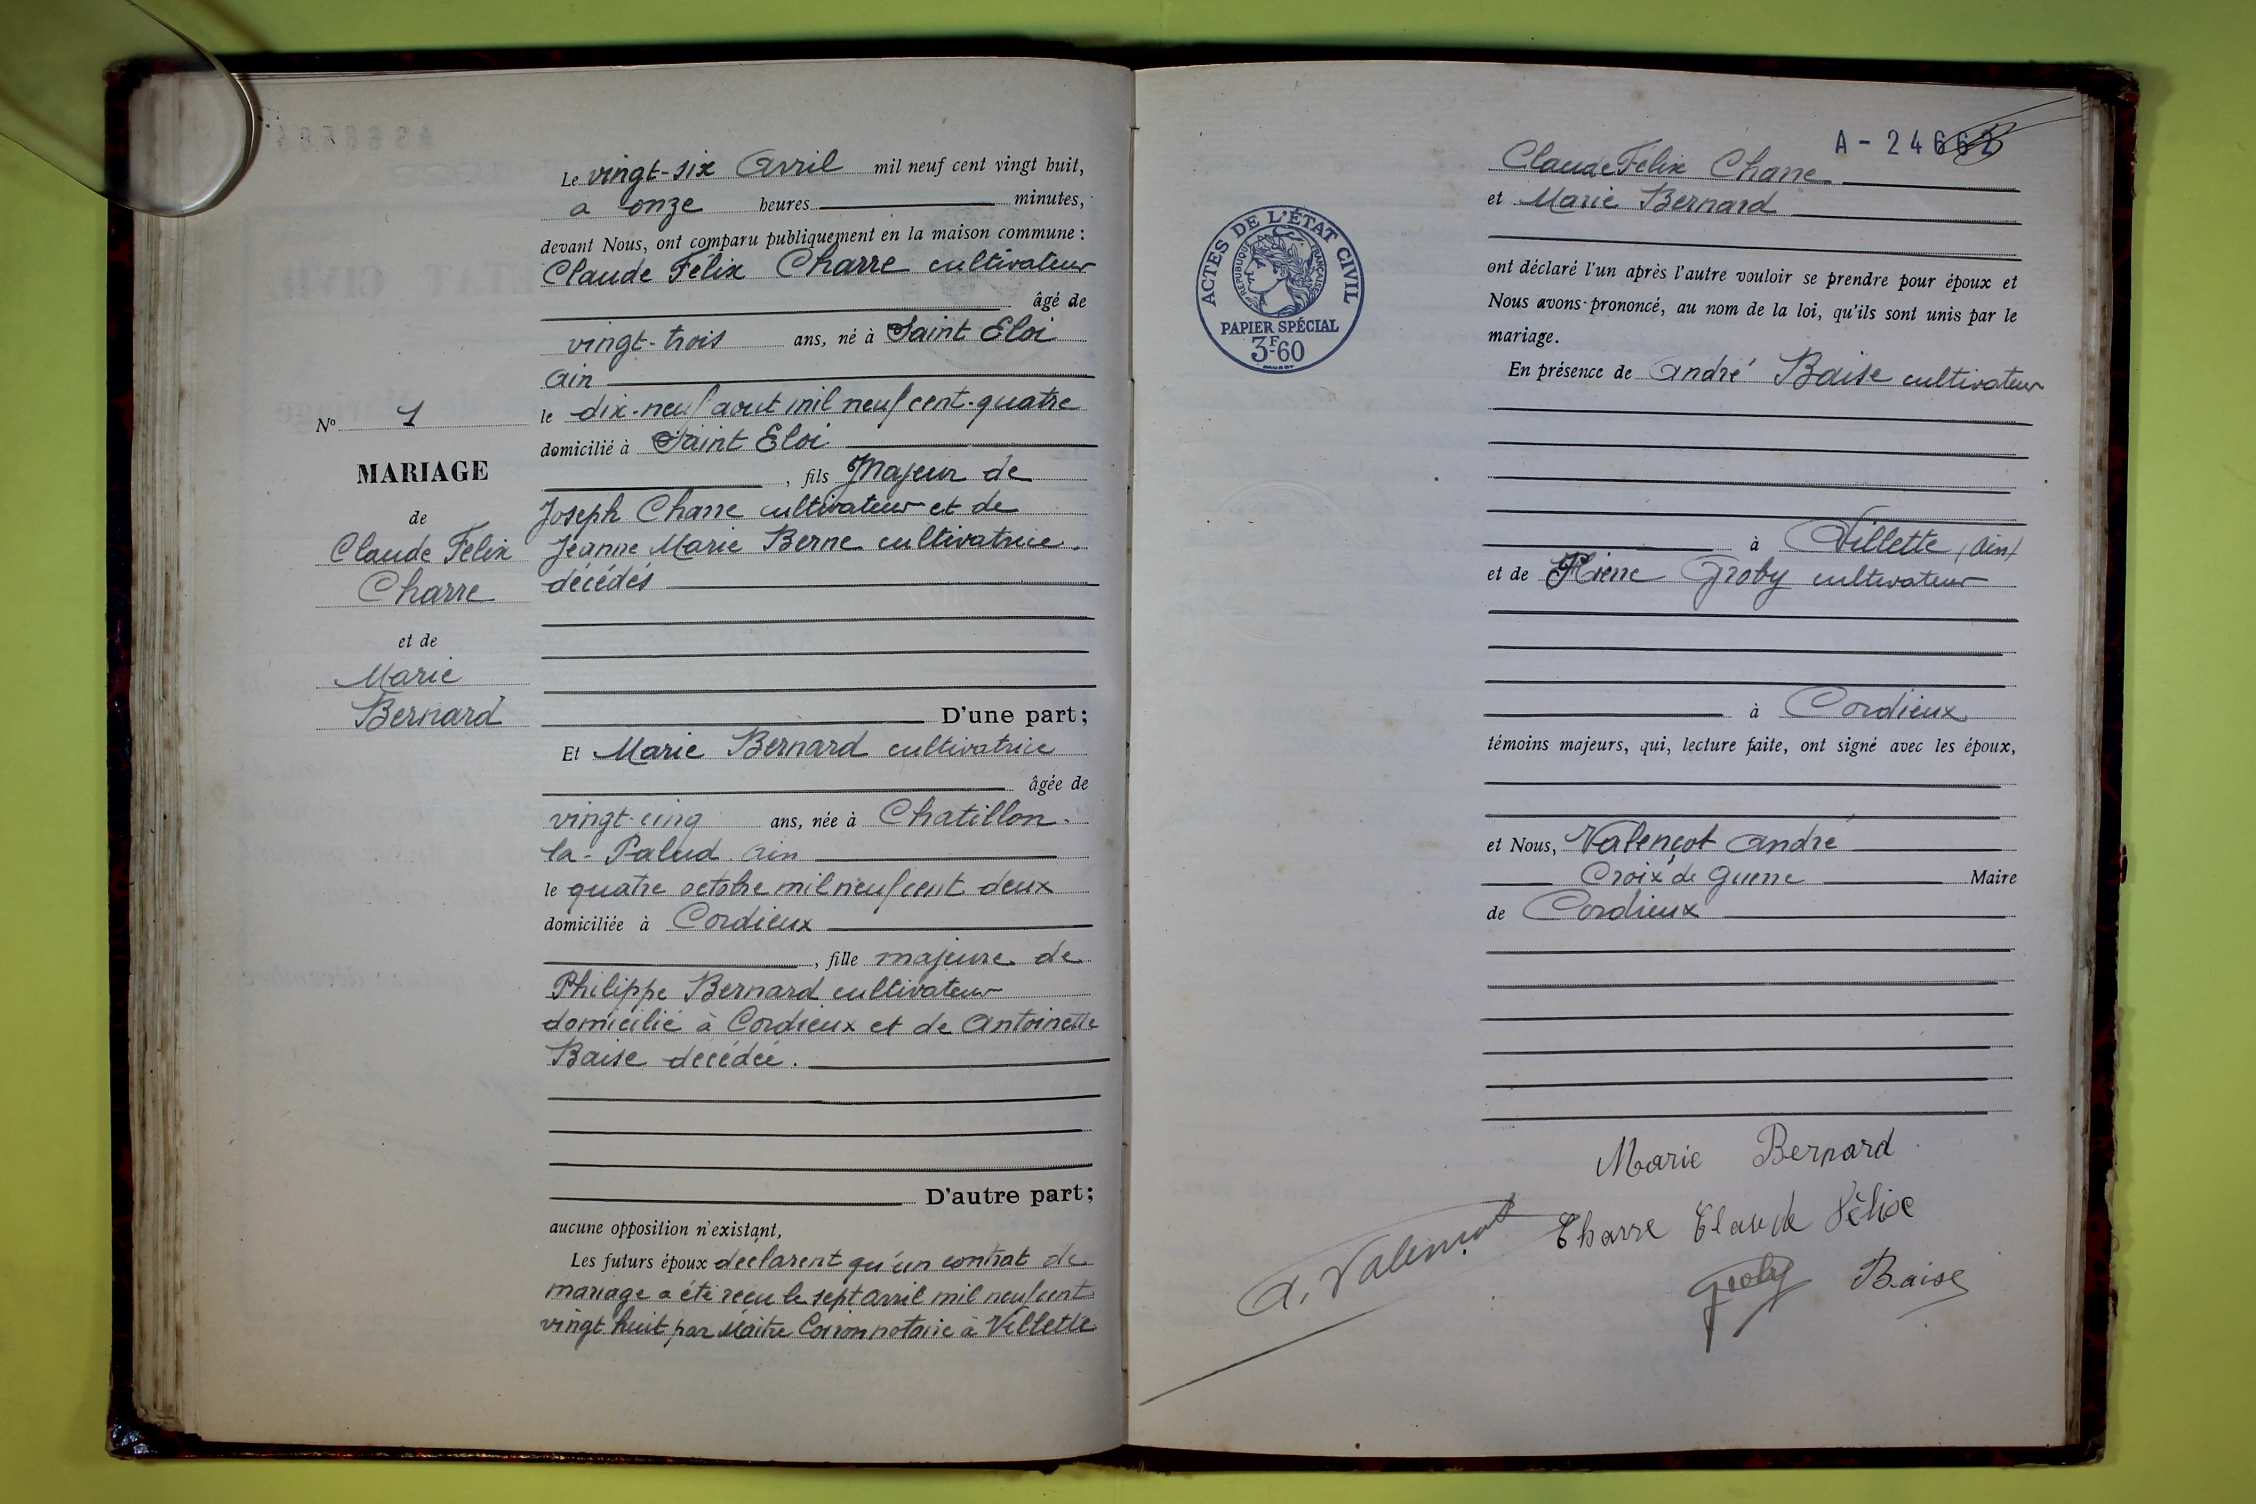 Le vingt-six Avril mil neuf cent vingt huit,
a onze heures minutes,
devant Nous, ont comparu publiquement en la maison commune :
Claude Félix Charre cultivateur
âgé de
vingt-trois ans, né à Saint Eloi
Ain
le dix-neuf aout mil neuf cent-quatre
domicilié à Saint Eloi
, fils Majeur de
Joseph Charre cultivateur et de
Jeanne Marie Berne cultivatrice.
décédés
D'une part;
Nº 1
MARIAGE
de
Claude Félix
Charre
et de
Marie
Bernard
Et Marie Bernard cultivatrice
âgée de
vingt-cinq ans, née à Chatillon-
la-Palud Ain
le quatre octobre mil neuf cent deux
domiciliée à Cordieux
, fille majeure de
Philippe Bernard cultivateur
domicilié à Cordieux et de Antoinette
Baise décédée.
D'autre part;
aucune opposition n'existant,
Les futurs époux déclarent qu'un contrat de
mariage a été reçu le sept avril mil neuf cent
vingt huit par Maitre notaire à Villette
A-24662
ACTES DE L'ÉTAT CIVIL
RÉPUBLIQUE FRANÇAISE
PAPIER SPÉCIAL
3F-60
Claude Félix Charre
et Marie Bernard
ont déclaré l'un après l'autre vouloir se prendre pour époux et
Nous avons prononcé, au nom de la loi, qu'ils sont unis par le
mariage.
En présence de André Baise cultivateur
à Villette (Ain)
et de Pierre Groby cultivateur
à Cordieux
témoins majeurs, qui, lecture faite, ont signé avec les époux,
et Nous, Valençot André
Croix de Guerre Maire
de Cordieux
Marie Bernard
Charre Claude Félix
A. Valençot
Groby Baise